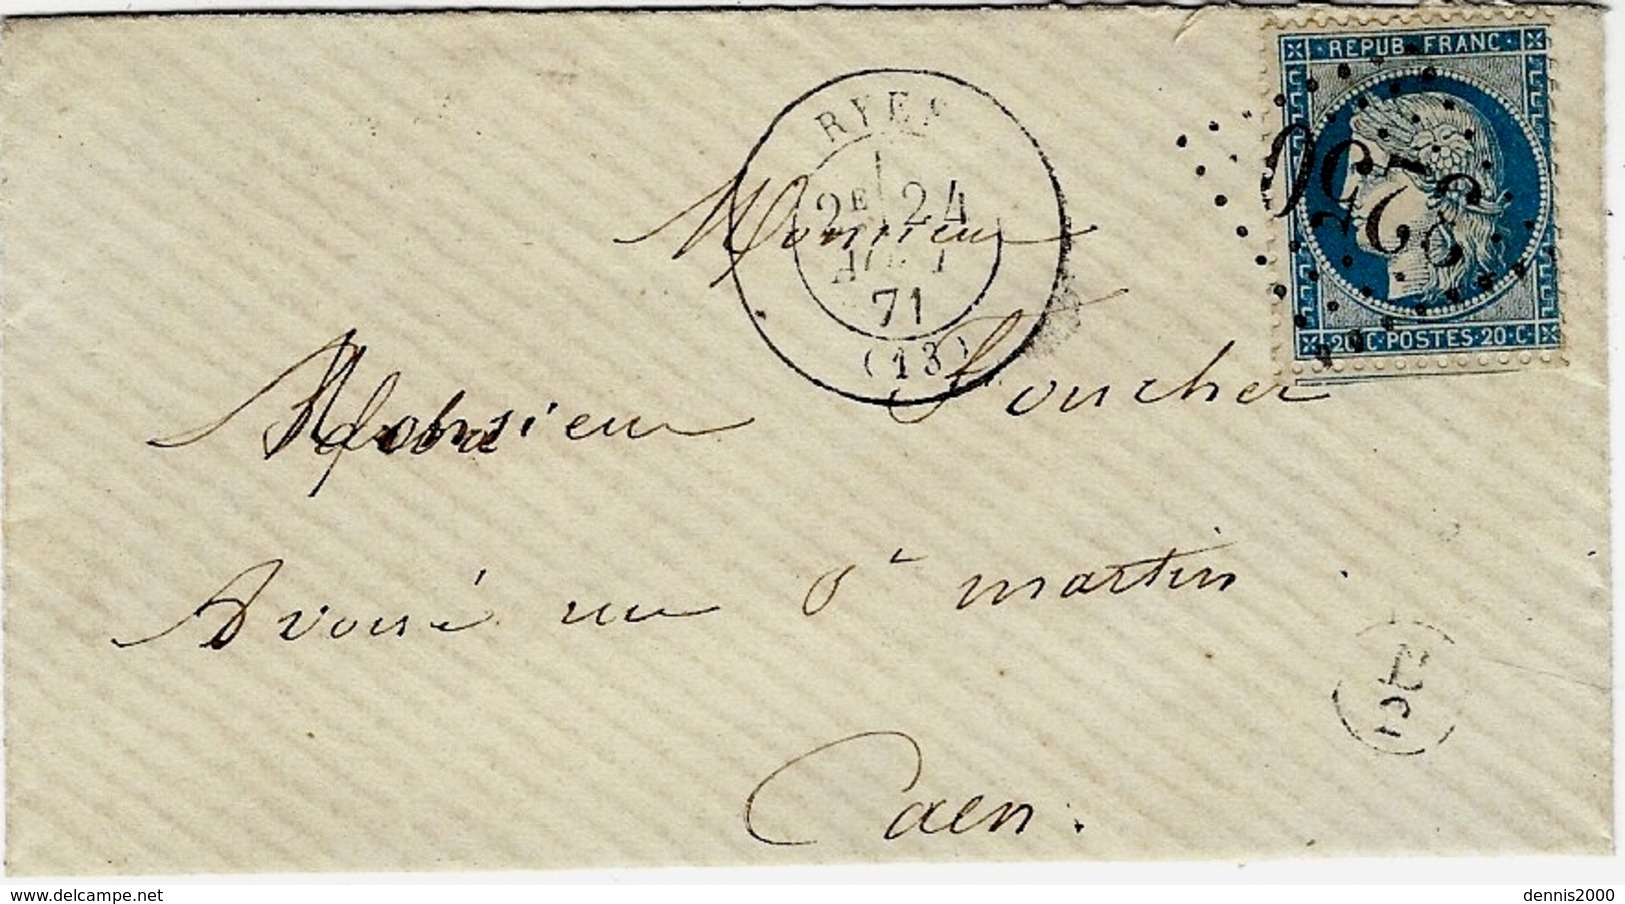 REPUB FRANC
20 C · POSTES · 20 · C
RYES
2E 24
AOUT
71
(13)
Monsieur
Monsieur Foucher
Avoué rue St martin
Caen.
delcampe.net
dennis2000